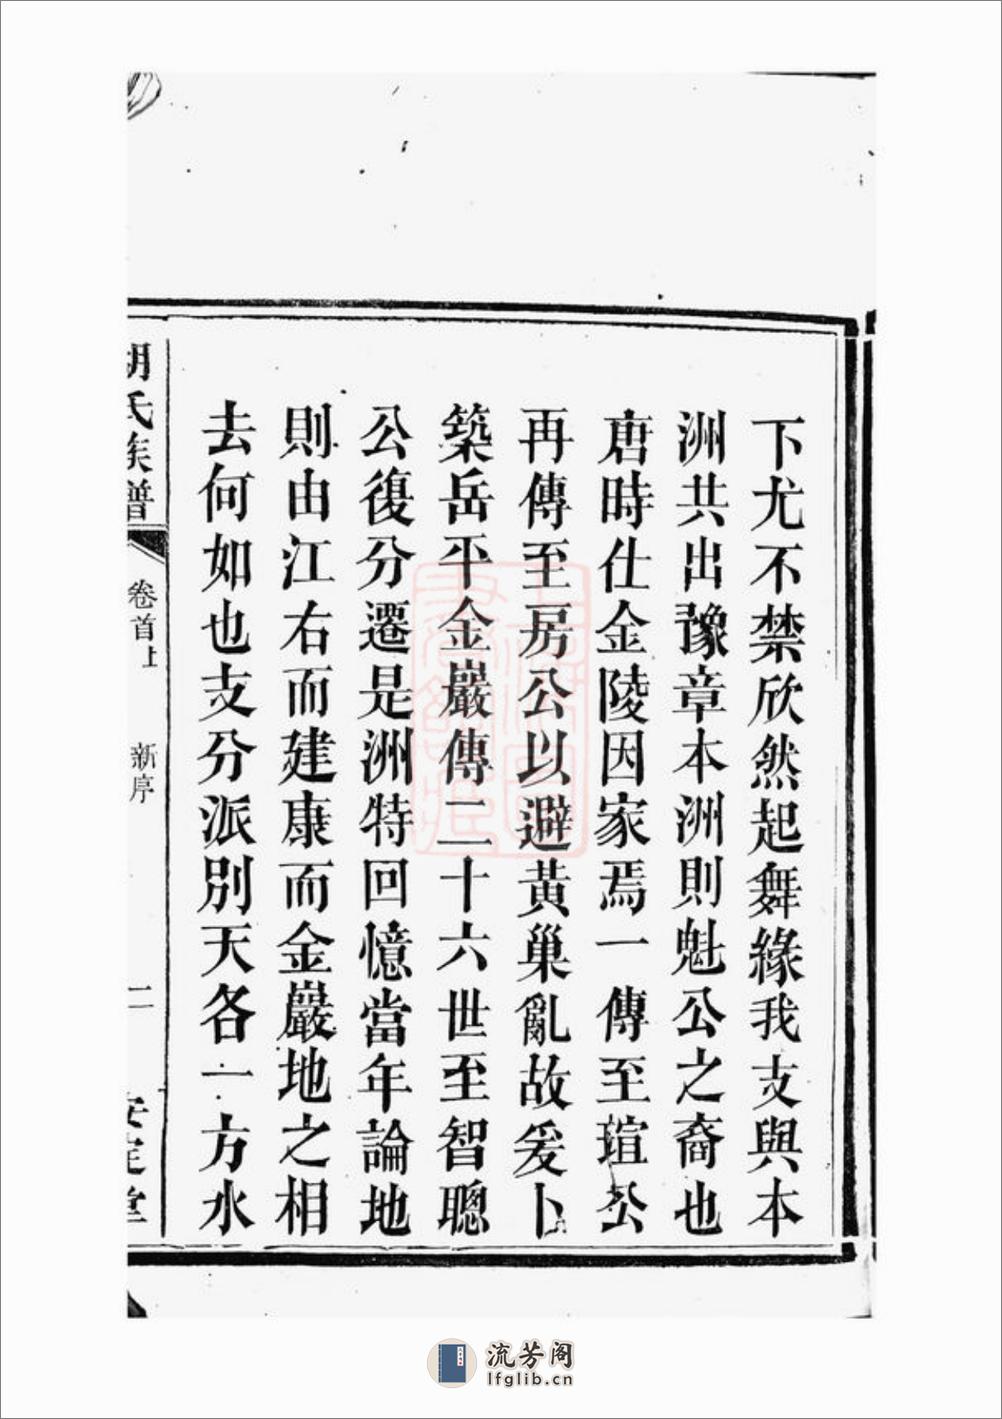 下尤不禁欣然起舞緣我支與本
洲共出豫章本洲則魁公之裔也
唐時仕金陵因家焉一傳至瑄公
再傳至房公以避黃巢亂故爰卜
築岳平金巖傳二十六世至智聰
公復分遷是洲特回憶當年論地
則由江右而建康而金巖地之相
去何如也支分派別天各一方水
胡氏族譜
卷首上
新序
二
安定堂
流芳阁
lfglib.cn